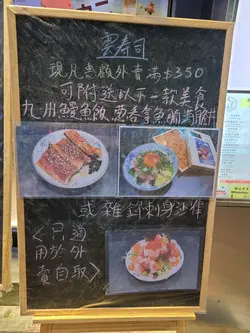 雲寿司
現凡惠顧外賣滿$350
可附送以下一款美食
九州鰻魚飯 葱吞拿魚腩薄脆片
或雜錦刺身沙律
<只適
用於外
賣自取>